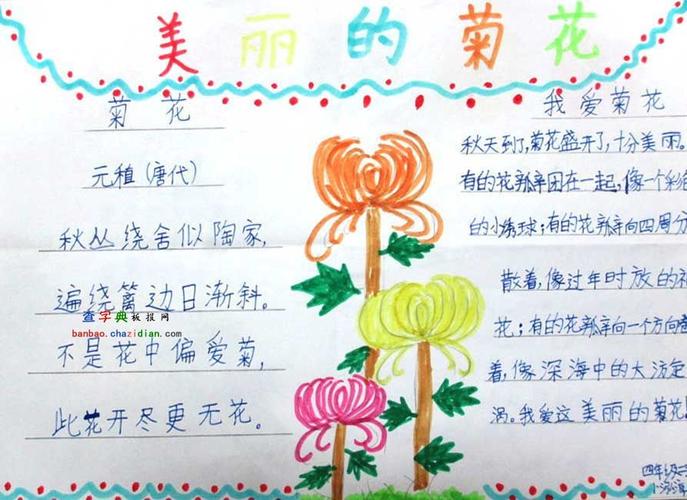 美丽的菊花
菊花
元植(唐代)
秋丛绕舍似陶家,
遍绕篱边日渐斜。
查字典 板报网
banbao.chazidian.com
不是花中偏爱菊,
此花开尽更无花。
我爱菊花
秋天到了,菊花盛开了,十分美丽。
有的花瓣团在一起,像一个彩
的小绣球;有的花瓣向四周分
散着,像过年时放的礼
花;有的花瓣向一个方向
着,像深海中的大漩
涡。我爱这美丽的菊花
四年级